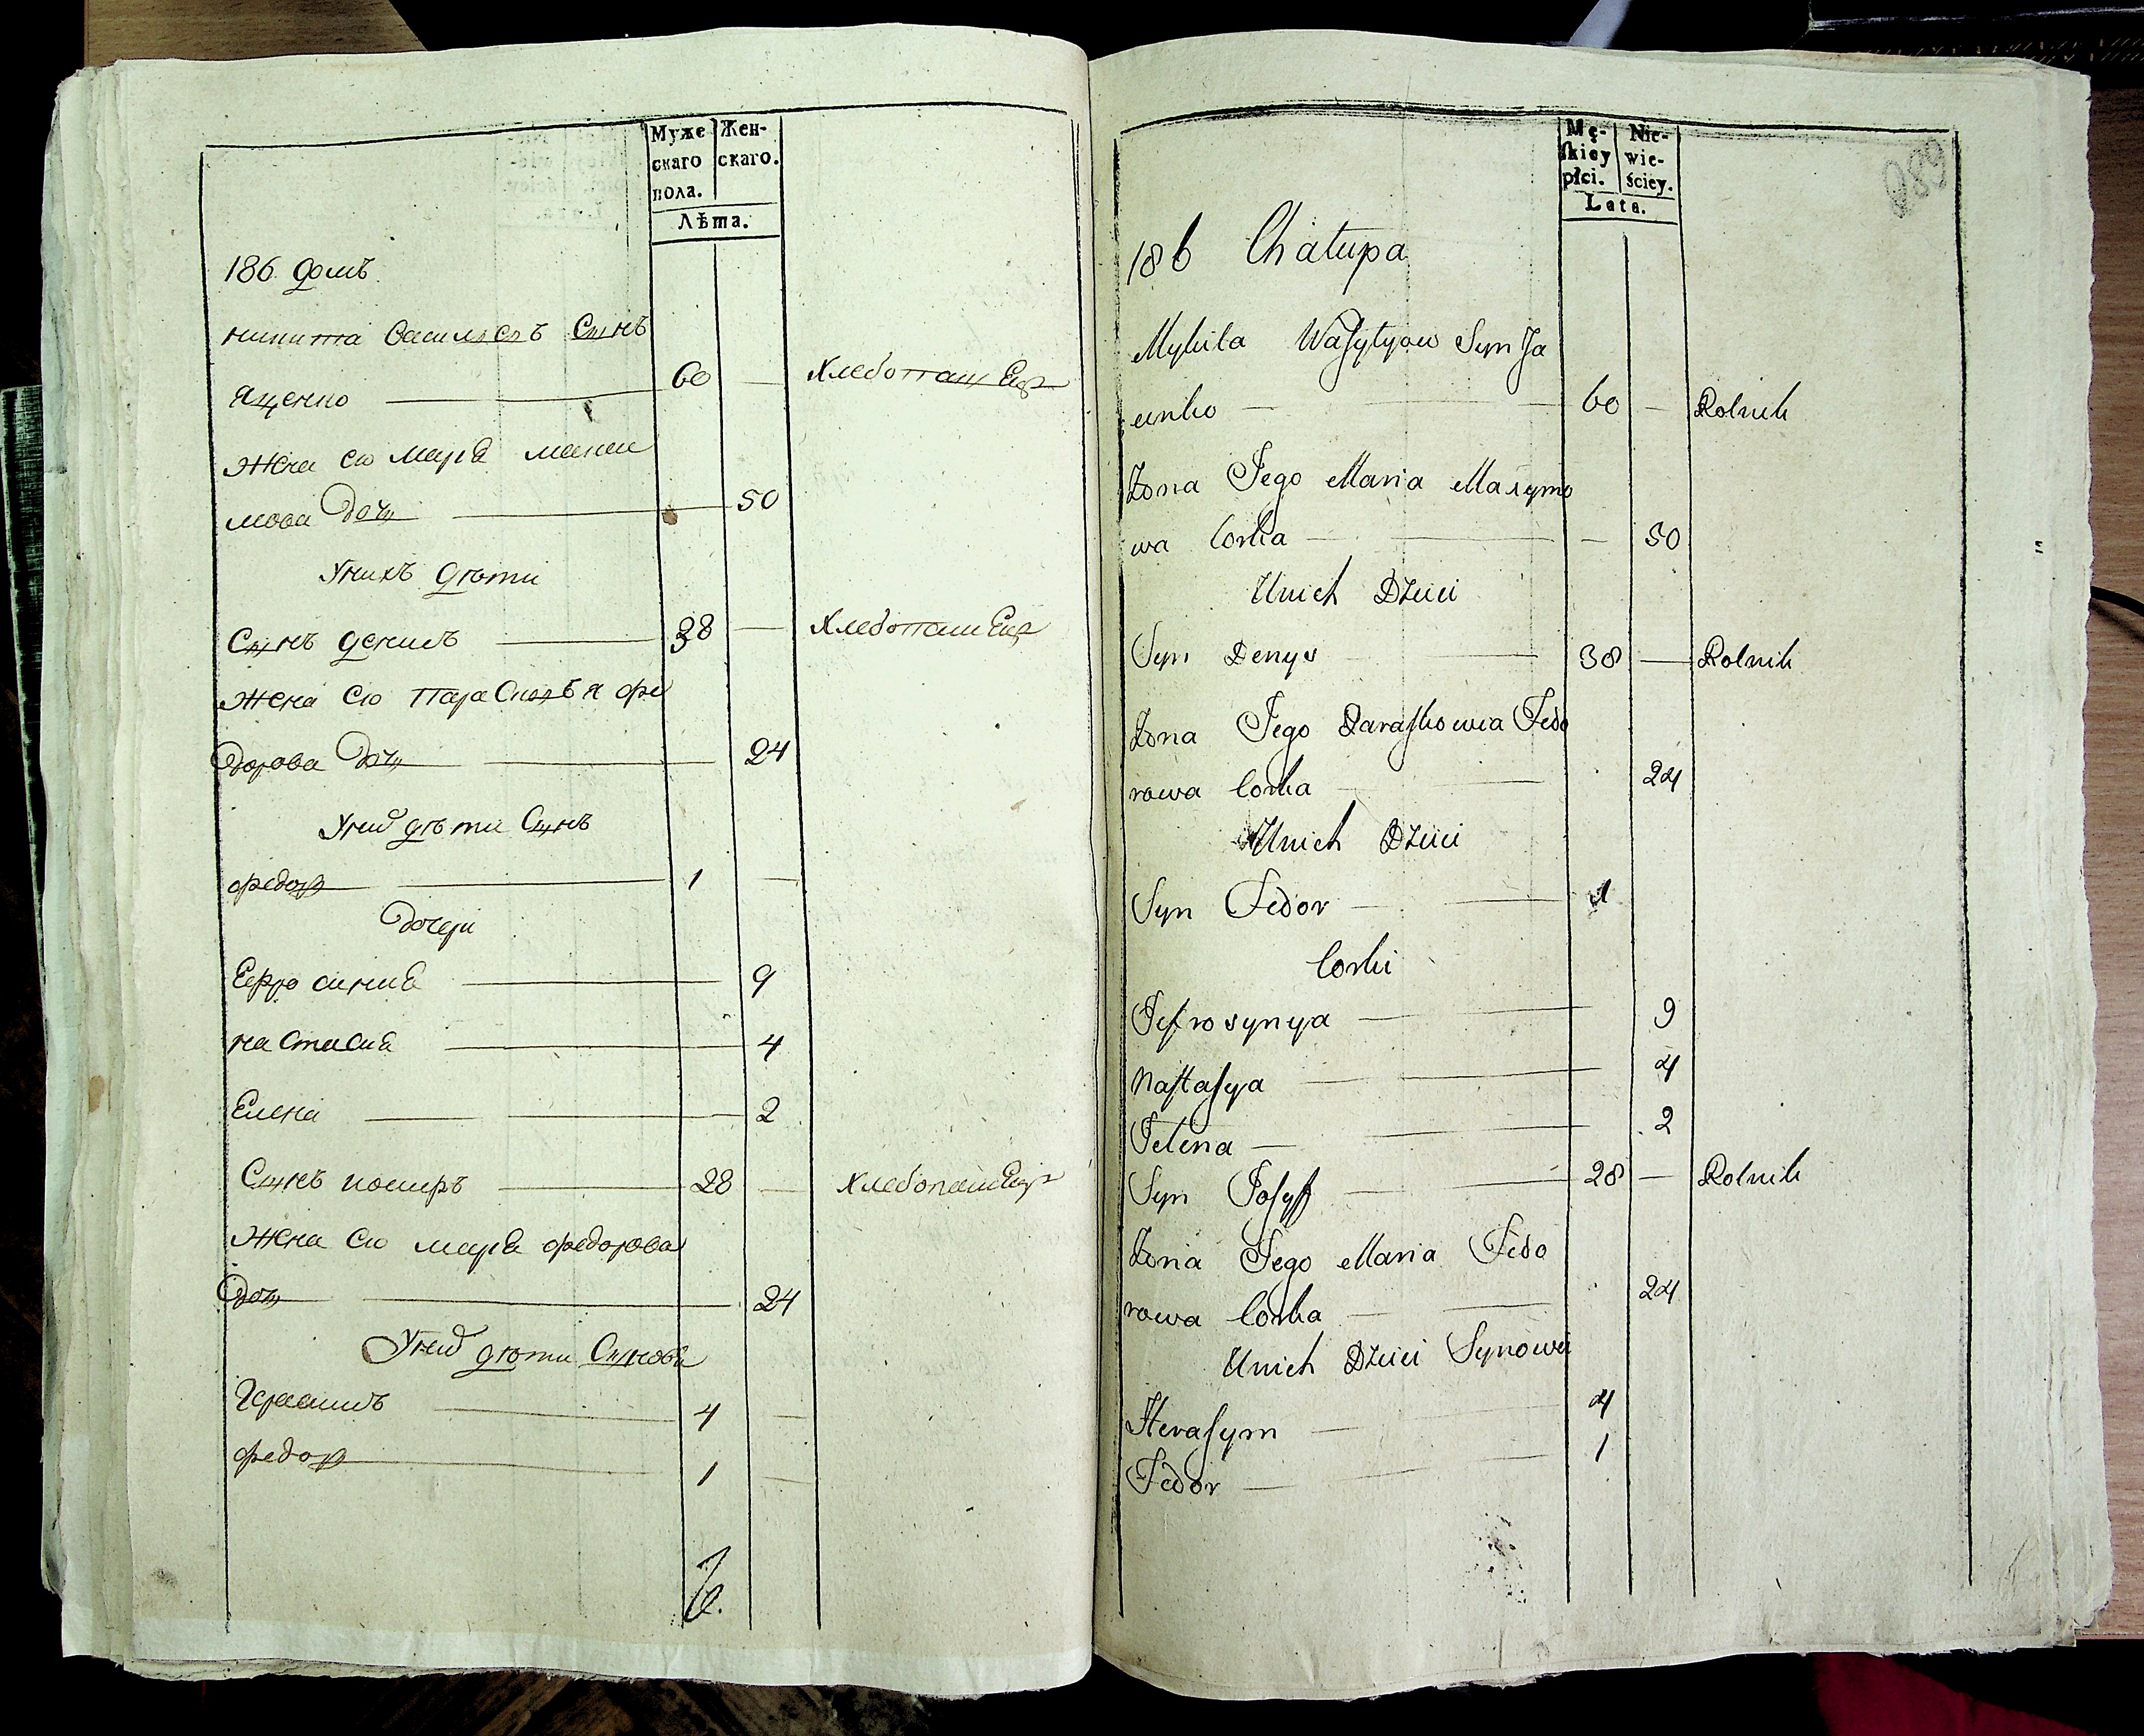 Муже Жен-
скаго скаго.
пола.
Лѣта.
186 домъ
никита Василіевъ Сынъ
Яценко 60 — Хлебопашецъ
Жена его Марія макси
мова Дочь 50
У нихъ дѣти
Сынъ денисъ 38 — Хлебопашецъ
Жена его Парасковья фе
дорова Дочь 24
У них дѣти Сынъ
федор 1 —
Дочери
Ефросинія 9
настасия 4
Елена 2
Сынъ иосифъ 28 — Хлебопашецъ
Жена его марія федорова
Дочь 24
У них дѣти Сыновя
Герасимъ 4 —
федор 1 —
Mę- Nie-
skiey wie-
płci. ściey.
Lata.
289
186 Chałupa
Mykita Wasylyow Syn Ja
cenko — 60 — Rolnik
Żona Jego Maria Maxymo
wa Corka — — 50
Unich Dzieci
Syn Denys — 38 — Rolnik
Żona Jego Paraskowia Fedo
rowa Corka — 24
Unich Dzieci
Syn Fedor — 1
Corki
Jefrosynya — 9
Nastasya — 4
Jelena — 2
Syn Josyf — 28 — Rolnik
Żona Jego Maria Fedo
rowa Corka — 24
Unich Dzieci Synowie
Herasym — 4
Fedor — 1